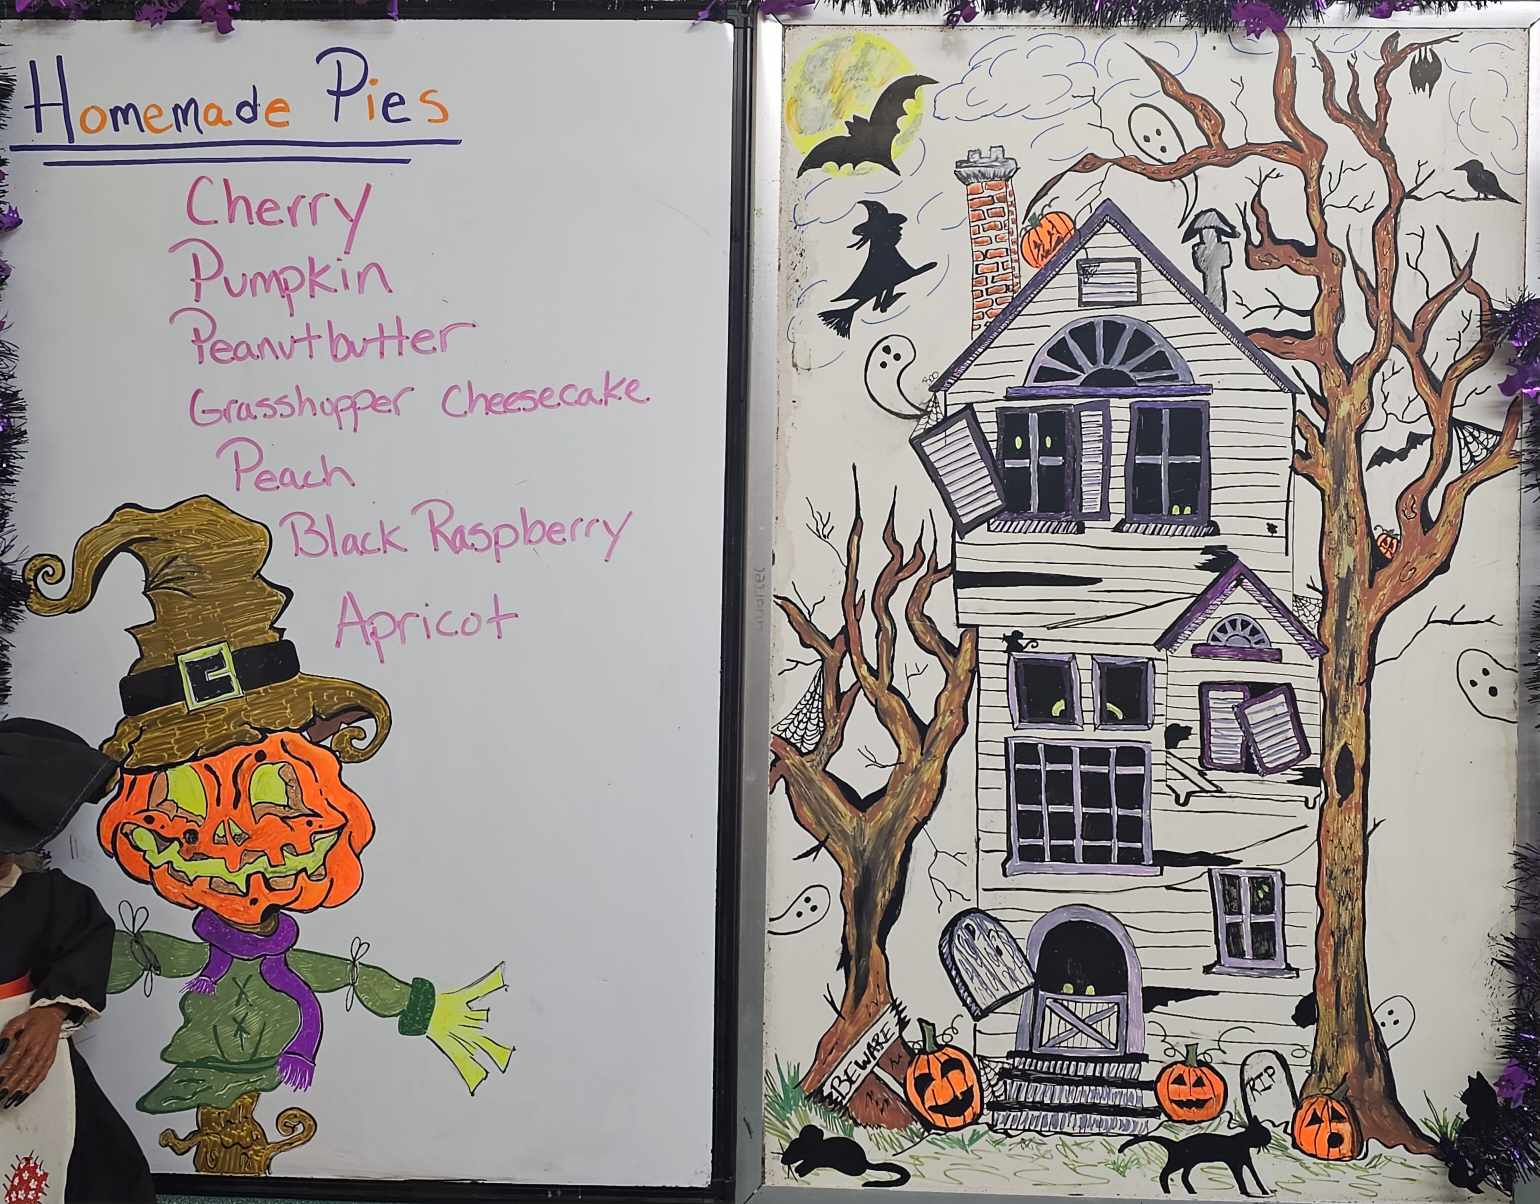 Homemade Pies
Cherry
Pumpkin
Peanutbutter
Grasshopper Cheesecake
Peach
Black Raspberry
Apricot
BOO
BEWARE
RIP